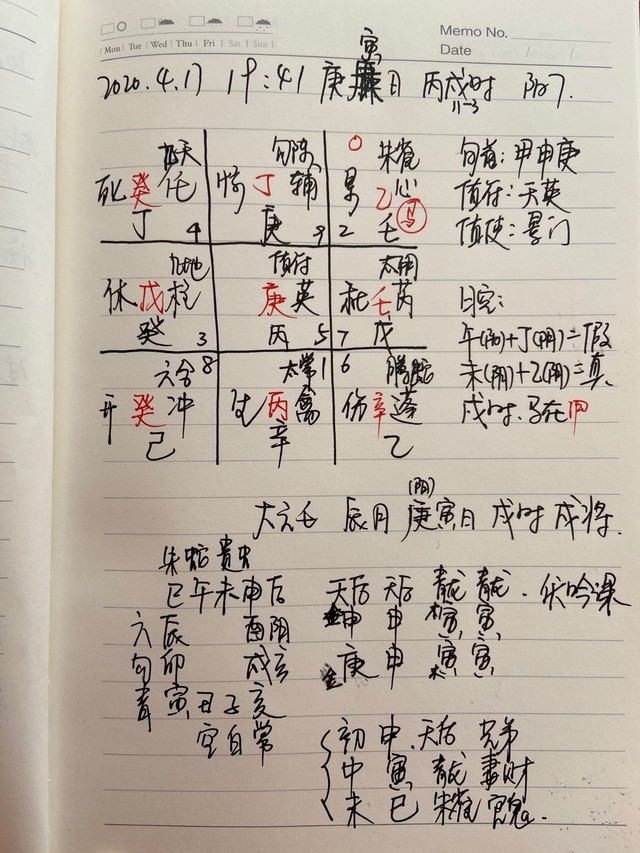 Memo No.
Mon Tue Wed Thu Fri Sat Sun
Date
寅
2020.4.17 19:41 庚日 丙戌时 阴7.
11-3
九天 勾陈 朱雀 旬首:甲申庚
死癸任 惊丁辅 景乙心 值符:天英
丁 4 庚 9 2 壬 马 值使:景门
九地 值符 太阴
休戊柱 庚英 杜壬芮 日空:
癸 3 丙 5 7 戊 午(阳)+丁(阴)=假
六合 8 太常 1 6 腾蛇 未(阴)+乙(阴)=真
开癸冲 生丙禽 伤辛蓬 戌时.马在甲
己 辛 乙
(阴)
大六壬 辰月 庚寅日 戌时 戌将.
朱蛇贵
巳午未申后 天后 天后 青龙 青龙. 伏吟课
六辰 酉阴 金申 申 木寅 寅
勾卯 戌 金庚 申 木寅 寅
青寅丑子亥
空白常
初 申 天后 兄弟
中 寅 青龙 妻财
末 巳 朱雀 官鬼.